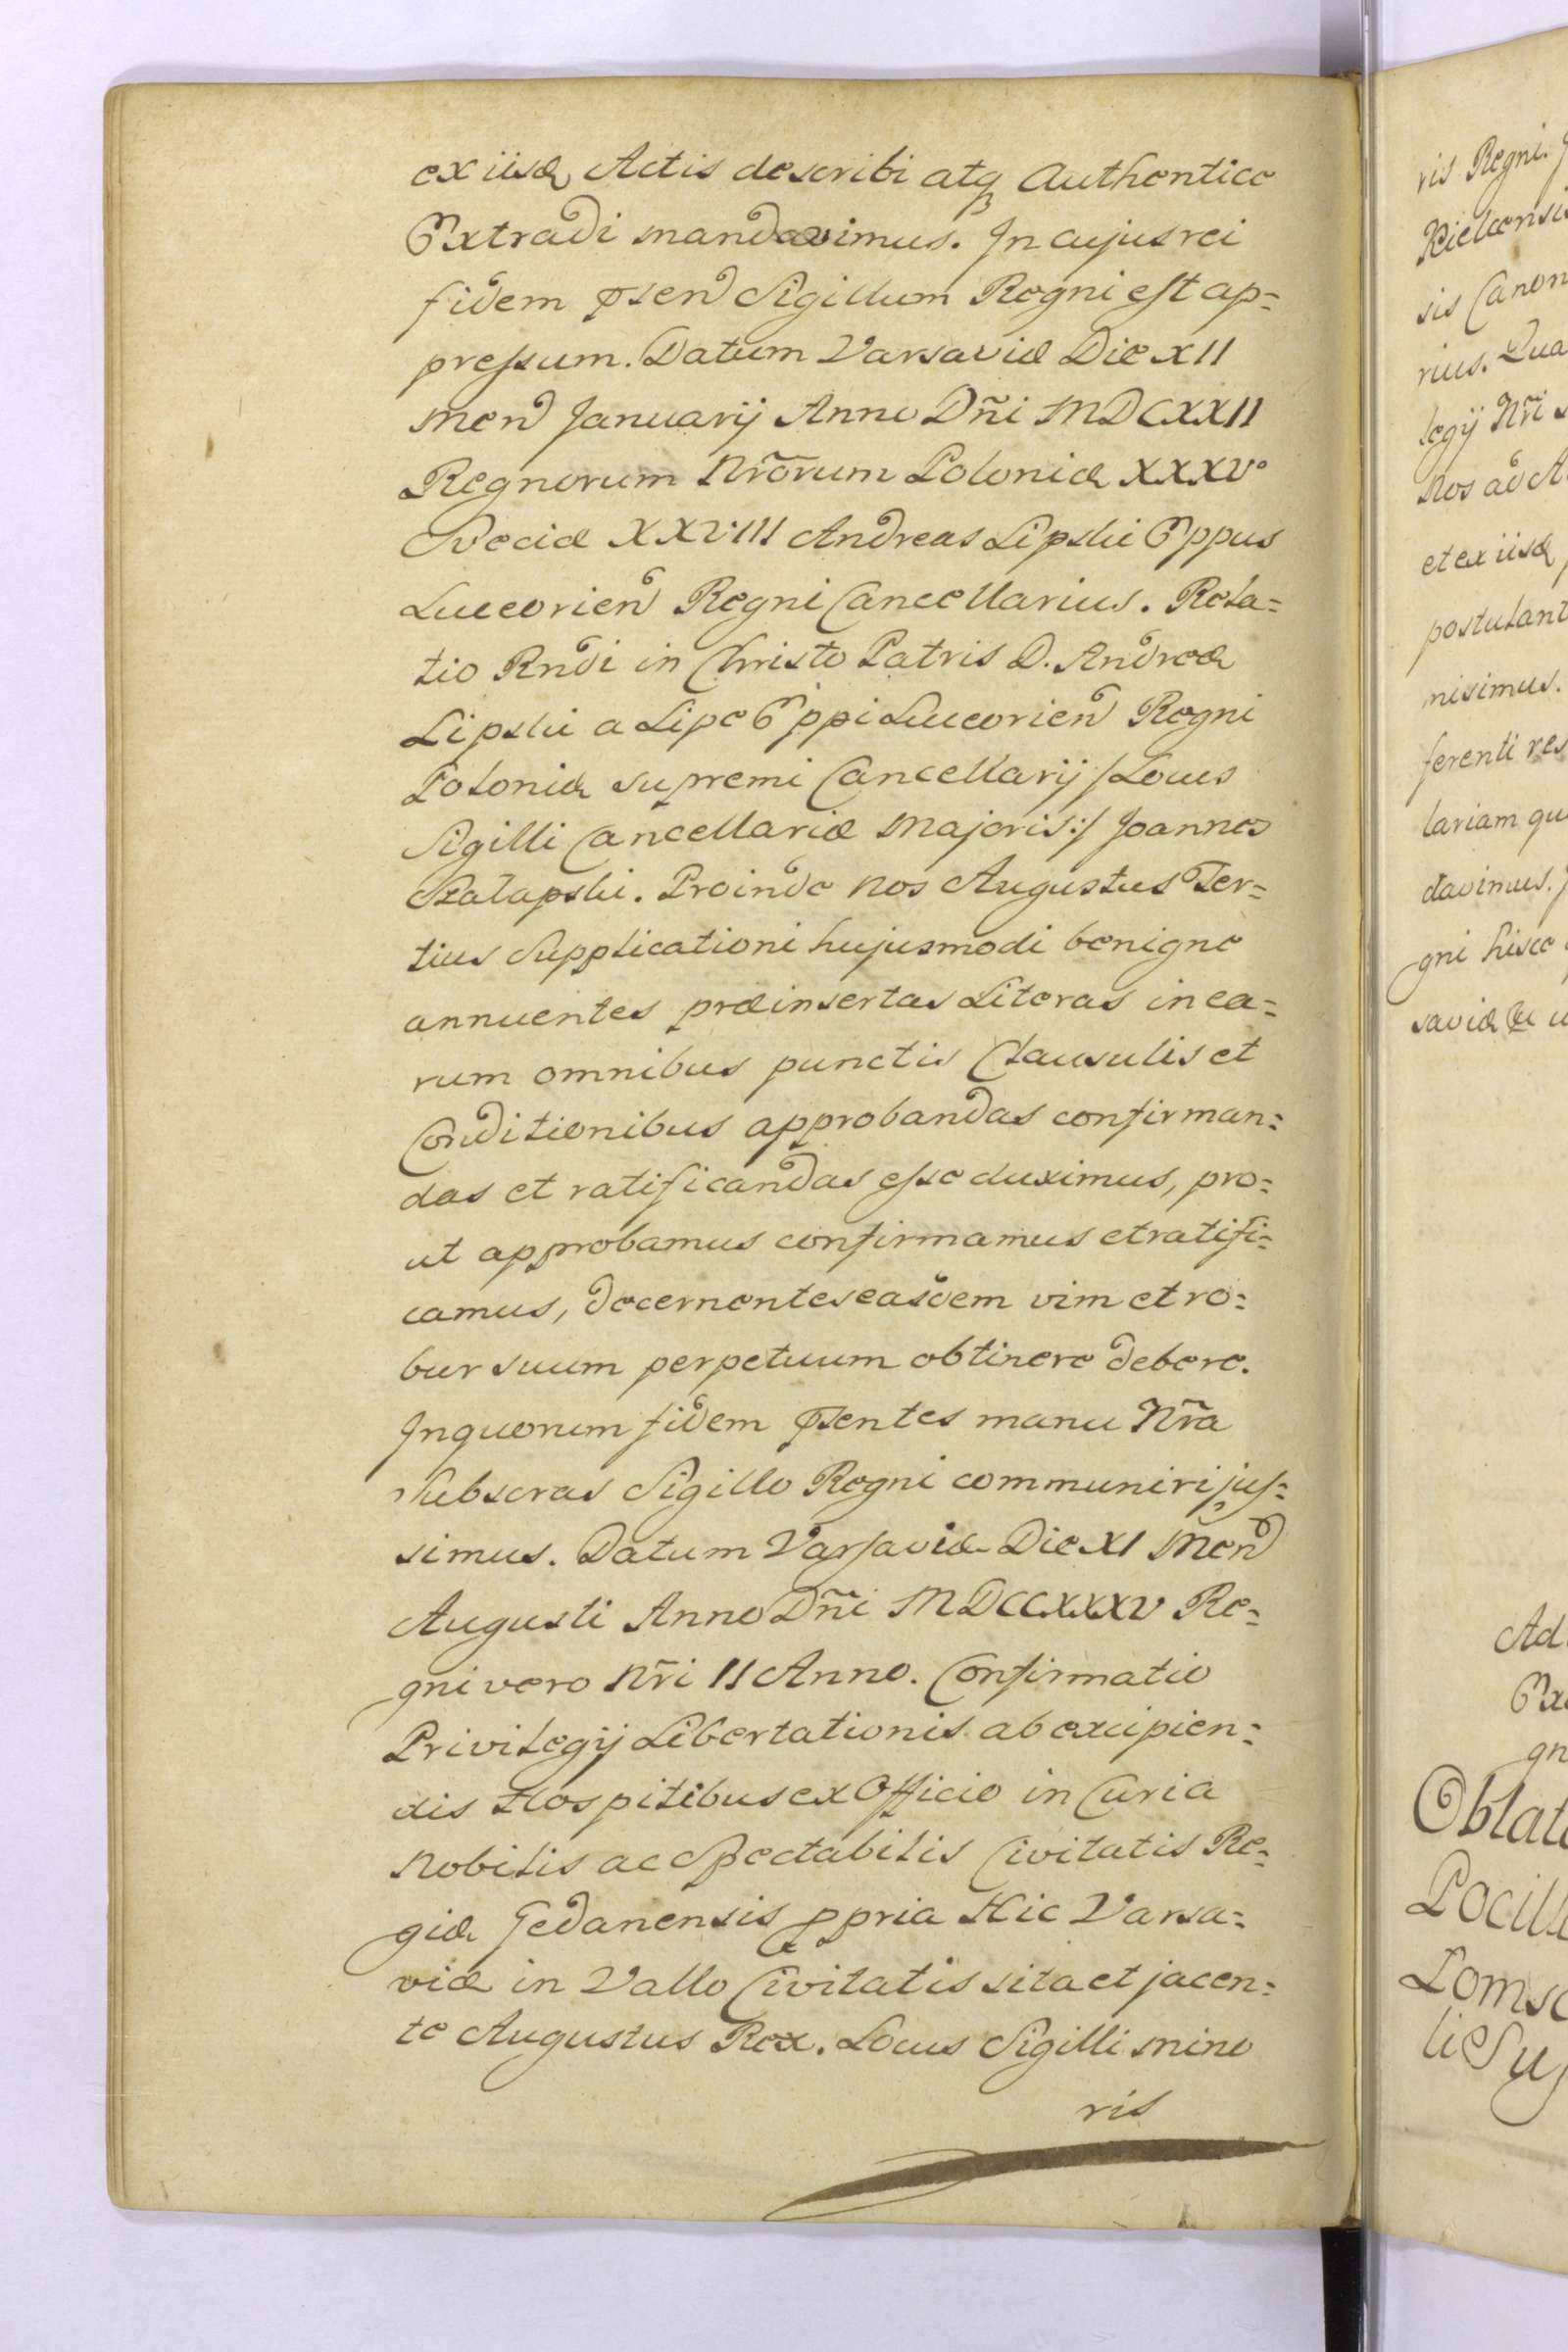 ex iisd Actis describi atq Authentice
Extradi mandavimus. In cujus rei
fidem psen Sigillum Regni est ap=
pressum. Datum Varsaviæ Die XII
Men Januarij Anno Dñi MDCXXII
Regnorum Nrõrum Poloniæ XXXVº
Sveciæ XXVIII Andreas Lipski Eppus
Luceorien Regni Cancellarius. Rela=
tio Rndi in Christo Patris D. Andreæ
Lipski a Lipe Eppi Luceorien Regni
Poloniæ supremi Cancellarij /Locus
Sigilli Cancellariæ Majoris:/ Joannes
Szalapski. Proinde nos Augustus Ter=
tius Supplicationi hujusmodi benigne
annuentes præinsertas Literas in ea=
rum omnibus punctis Clausulis et
Conditionibus approbandas confirman=
das et ratificandas esse duximus, pro=
ut approbamus confirmamus et ratifi=
camus, decernentes easdem vim et ro=
bur suum perpetuum obtinere debere.
In quorum fidem psentes manu Nr̃a
subscras Sigillo Regni communiri jus=
simus. Datum Varsaviæ Die XI Men
Augusti Anno Dñi MDCCXXXV Re=
gni vero Nr̃i II Anno. Confirmatio
Privilegij Libertationis ab excipien=
dis Hospitibus ex Officio in Curia
Nobilis ac Spectabilis Civitatis Re=
giæ Gedanensis ppria Hic Varsa=
viæ in Vallo Civitatis sita et jacen=
te Augustus Rex. Locus Sigilli mino
ris
ris Regni.
Kielcensis
sis Canon
rius. Qua
legij Nr̃i
Nos ad A
et ex iisd
postulant
nisimus.
ferenti res
lariam qu
davimus.
gni hisce
saviæ
Ad
Ex
gn
Oblat
Pocill
Lomsc
lie Su